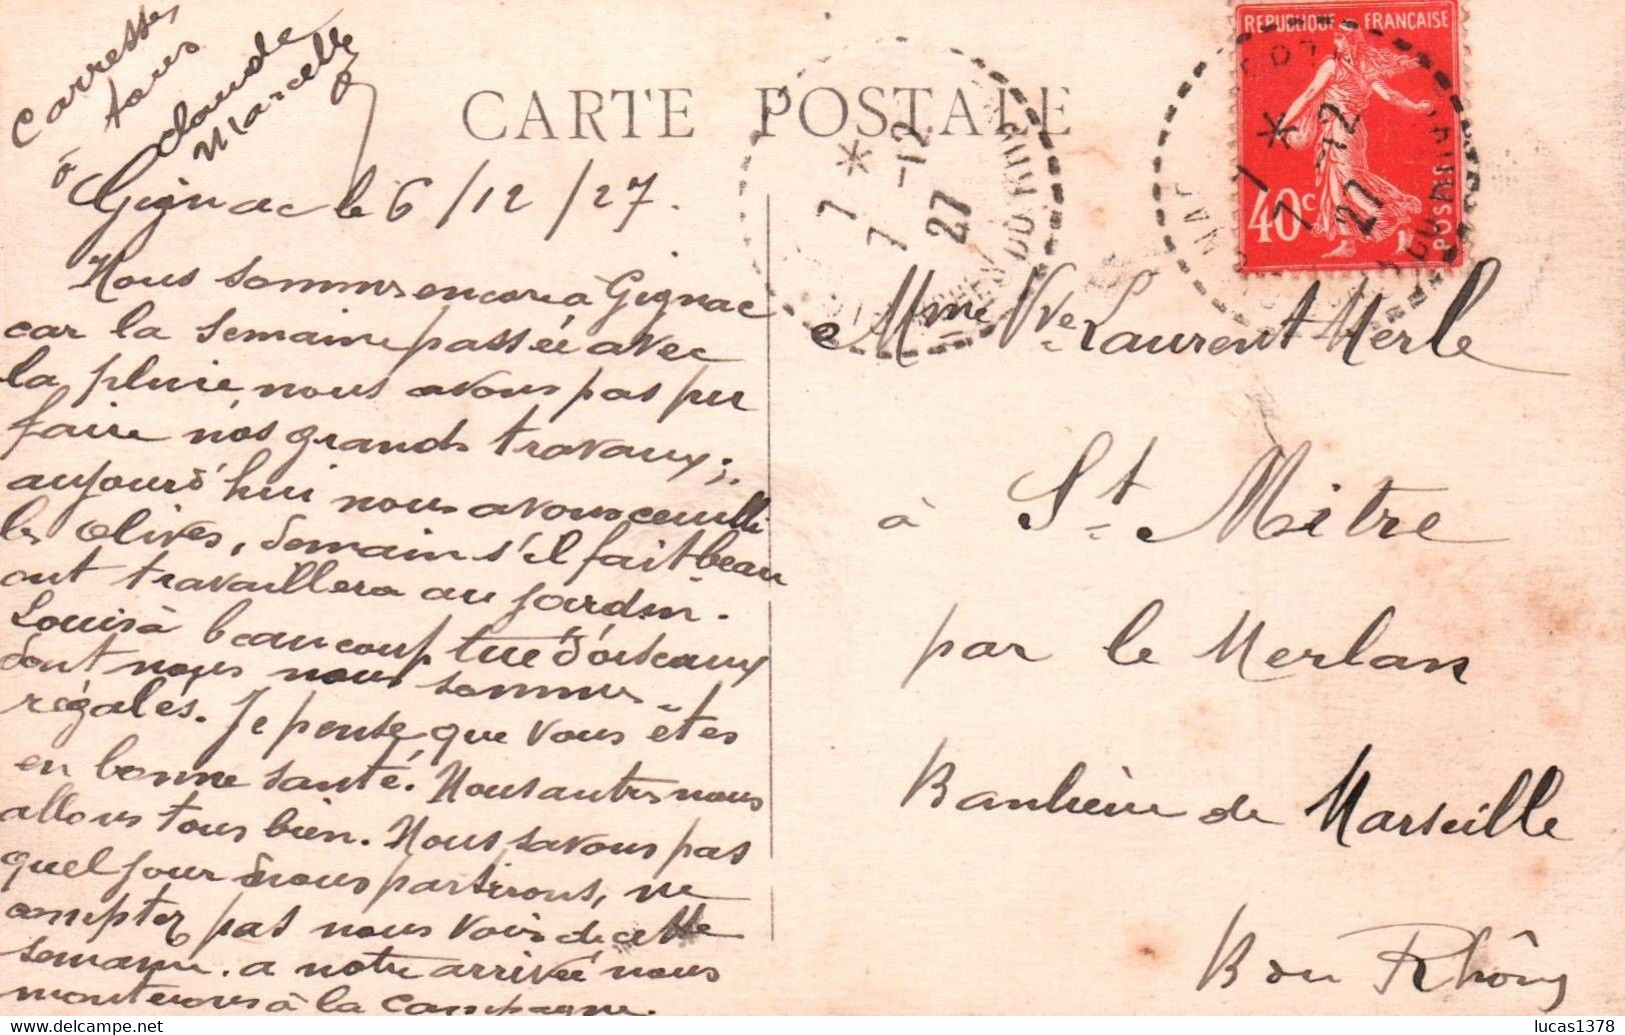 Carresses
à tous
Claude
Marcelle
CARTE POSTALE
REPUBLIQUE FRANÇAISE
40c
POSTES
7 *
7 -12
27
7 *
7 -12
27
DU RHONE
Gignac le 6/12/27.
Nous sommes encore à Gignac
car la semaine passée avec
la pluie, nous avons pas pu
faire nos grands travaux;
aujourd'hui nous avons ceuilli
les olives, demain s'il fait beau
ont travaillera au jardin.
Louis à beaucoup tué d'oiseaux
dont nous nous sommes
régalés. Je pense que vous êtes
en bonne santé. Nous autres nous
allons tous bien. Nous savons pas
quel jour nous partirons, ne
compter pas nous voir de cette
semaine. a notre arrivée nous
monterons à la campagne.
Mme Vve Laurent Merle
à St Mitre
par le Merlan
Banlieue de Marseille
B du Rhône
lucas1378